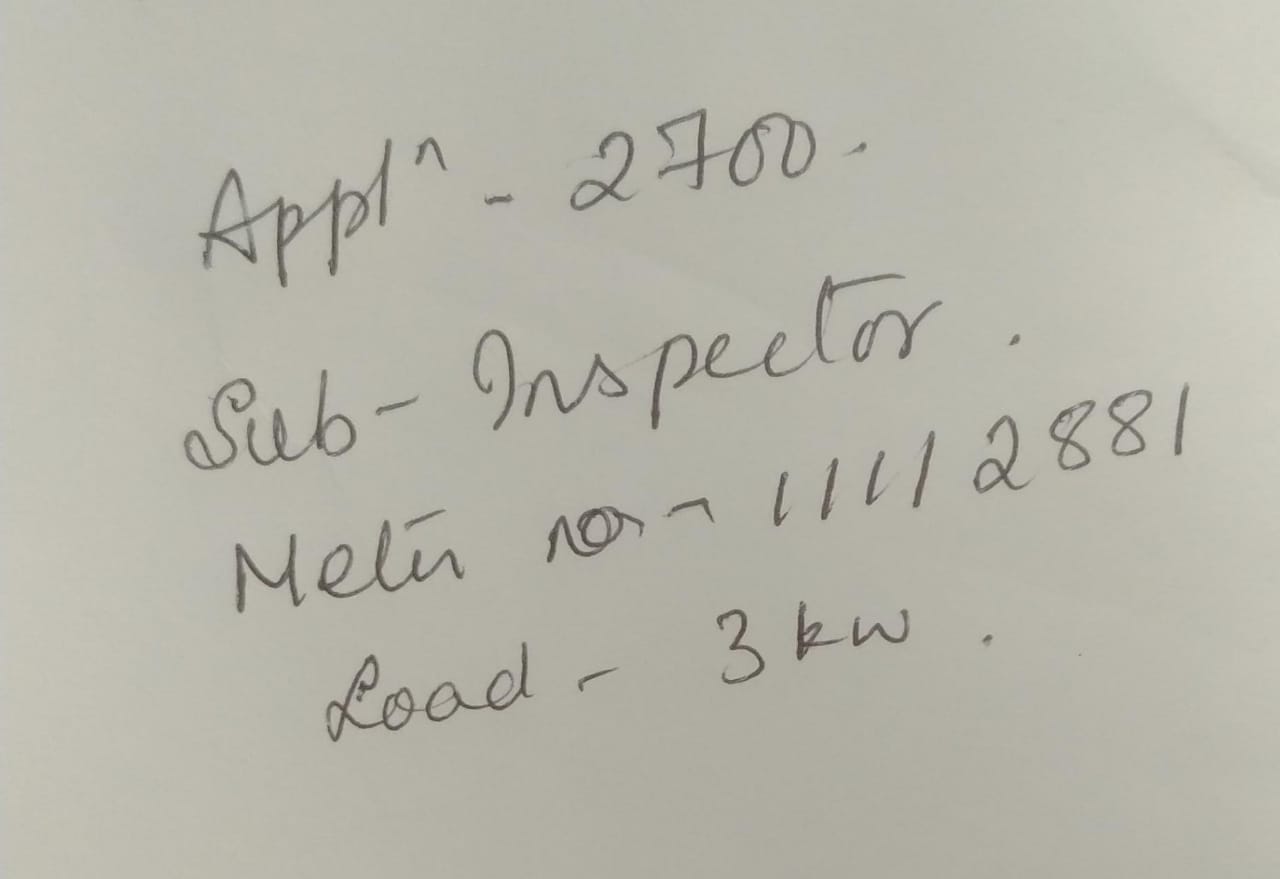 Appl^n - 2700.
Sub-Inspector.
Meter no - 11112881
Load - 3 kw.